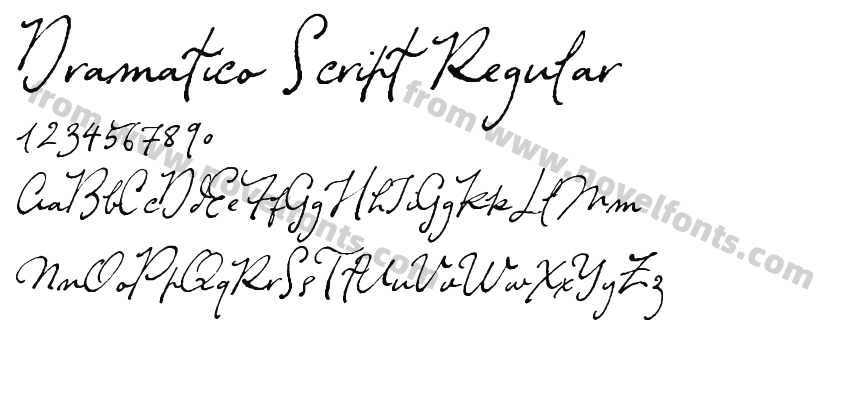 Dramatico Script Regular
1234567890
AaBbCcDdEeFfGgHhIiGgKkLlMm
NnOoPpQqRrSsTtUuVvWwXxYyZz
from www.novelfonts.com
from www.novelfonts.com